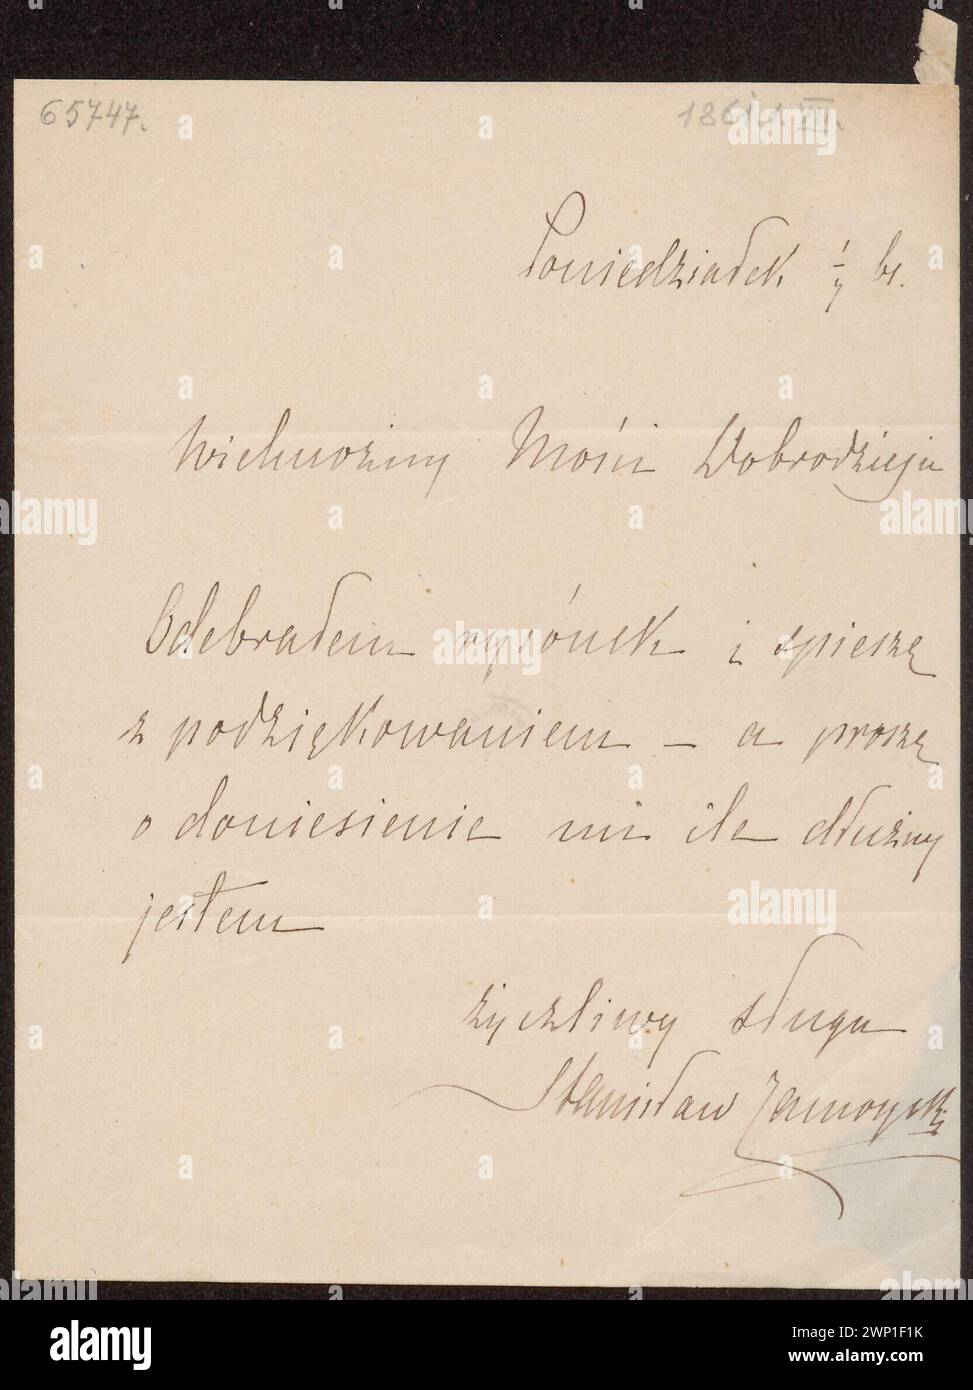 65747.
1861.1.VII.
Poniedziałek 1/7 61.
Wielmożny Mości Dobrodzieju
Odebrałem rysónek i spieszę
z podziękowaniem – a proszę
o doniesienie mi ile dłużny
jestem
życzliwy sługa
Stanisław Zamoyski
alamy
Image ID: 2WP1F1K
www.alamy.com